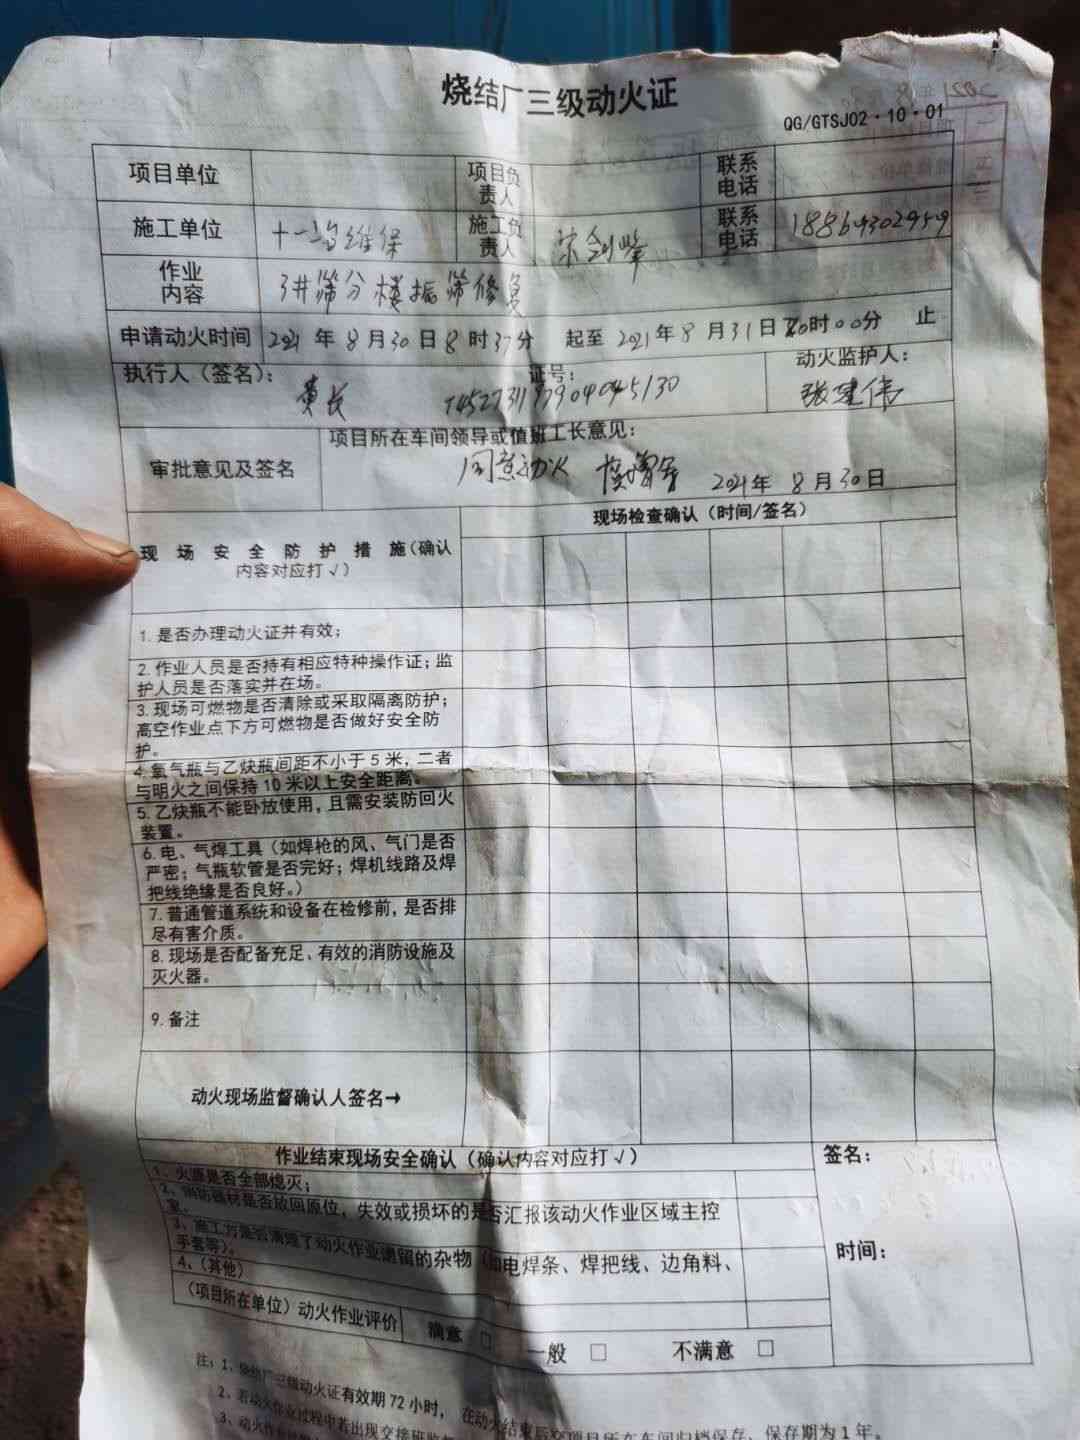 烧结厂三级动火证
QG/GTSJ02·10·01
项目单位 项目负责人 联系电话
施工单位 十一冶维保 施工负责人 宗剑峰 联系电话 18864302959
作业内容 3#筛分楼振筛修复
申请动火时间 2021年8月30日8时37分 起至 2021年8月31日20时00分 止
执行人（签名）： 黄长 证号： T452731197904045130 动火监护人： 张建伟
审批意见及签名 项目所在车间领导或值班工长意见：
同意动火 2021年8月30日
现场安全防护措施（确认内容对应打√） 现场检查确认（时间/签名）
1.是否办理动火证并有效；
2.作业人员是否持有相应特种操作证；监
护人员是否落实并在场。
3.现场可燃物是否清除或采取隔离防护；
高空作业点下方可燃物是否做好安全防
护。
4.氧气瓶与乙炔瓶间距不小于5米，二者
与明火之间保持10米以上安全距离。
5.乙炔瓶不能卧放使用，且需安装防回火
装置。
6.电、气焊工具（如焊枪的风、气门是否
严密；气瓶软管是否完好；焊机线路及焊
把线绝缘是否良好。）
7.普通管道系统和设备在检修前，是否排
尽有害介质。
8.现场是否配备充足、有效的消防设施及
灭火器。
9.备注
动火现场监督确认人签名→
作业结束现场安全确认（确认内容对应打√） 签名：
1、火源是否全部熄灭；
2、消防器材是否放回原位，失效或损坏的是否汇报该动火作业区域主控
室。
3、施工方是否清理了动火作业遗留的杂物（如电焊条、焊把线、边角料、
手套等）。
时间：
4、（其他）
（项目所在单位）动火作业评价 满意 □ 一般 □ 不满意 □
注：1、烧结厂三级动火证有效期72小时，在动火结束后交项目所在车间归档保存，保存期为1年。
2、若动火作业过程中若出现交接班
3、动火作